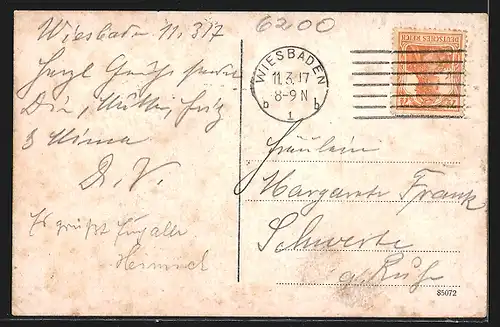 Wiesbaden 11.3.17
6200
Herzl. Grüße sendet
Dir, Mutter, Fritz
& Minna
D. V.
Es grüßt Euch alle
WIESBADEN
11.3.17
8-9 N
b 1 b
DEUTSCHES REICH
Fräulein
Margarete Frank
Schwerte
a/Ruhr
85072